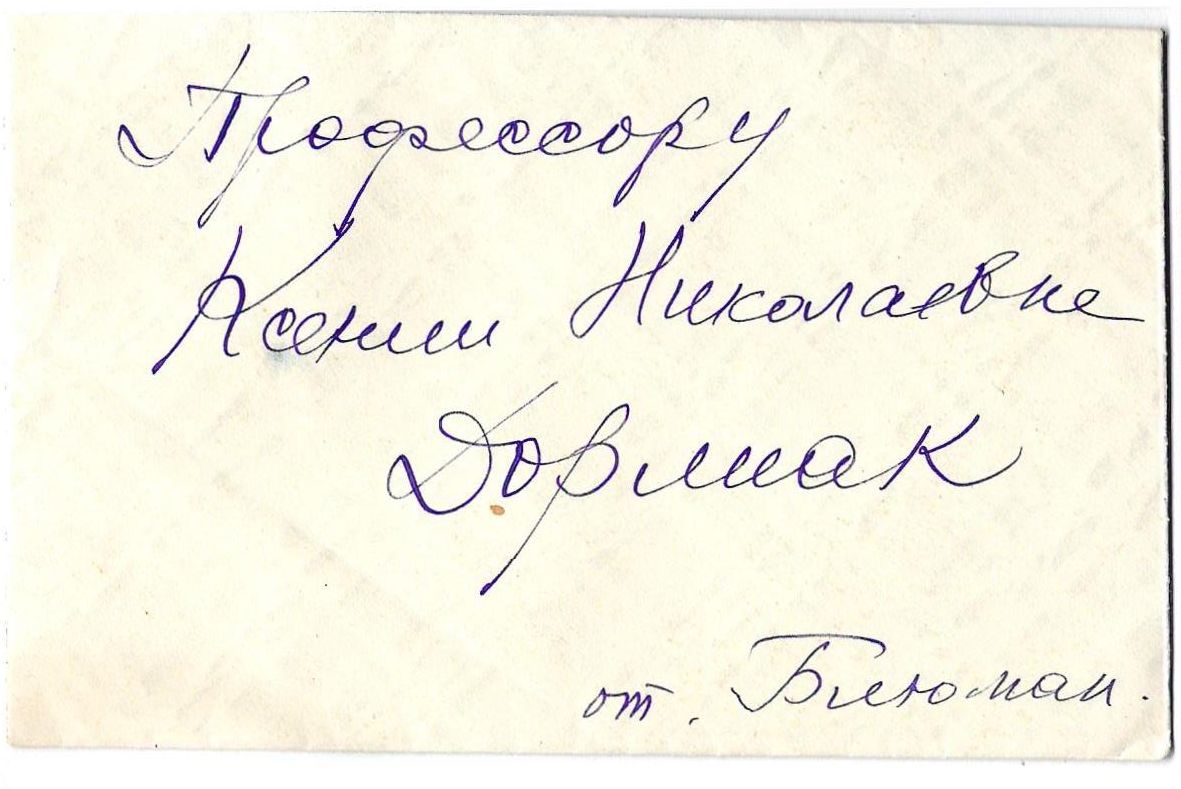 Профессору
Ксении Николаевне
Дорлиак
от. Блюман.